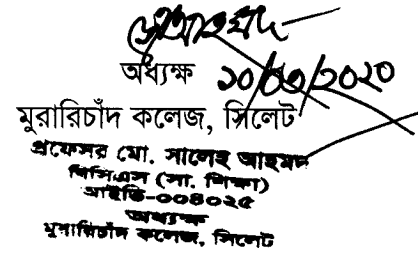 অধ্যক্ষ ১০/০৩/২০২০
মুরারিচাঁদ কলেজ, সিলেট
প্রফেসর মো. সালেহ আহমদ
বিসিএস (সা. শিক্ষা)
আইডি-০০৪০২৫
অধ্যক্ষ
মুরারিচাঁদ কলেজ, সিলেট